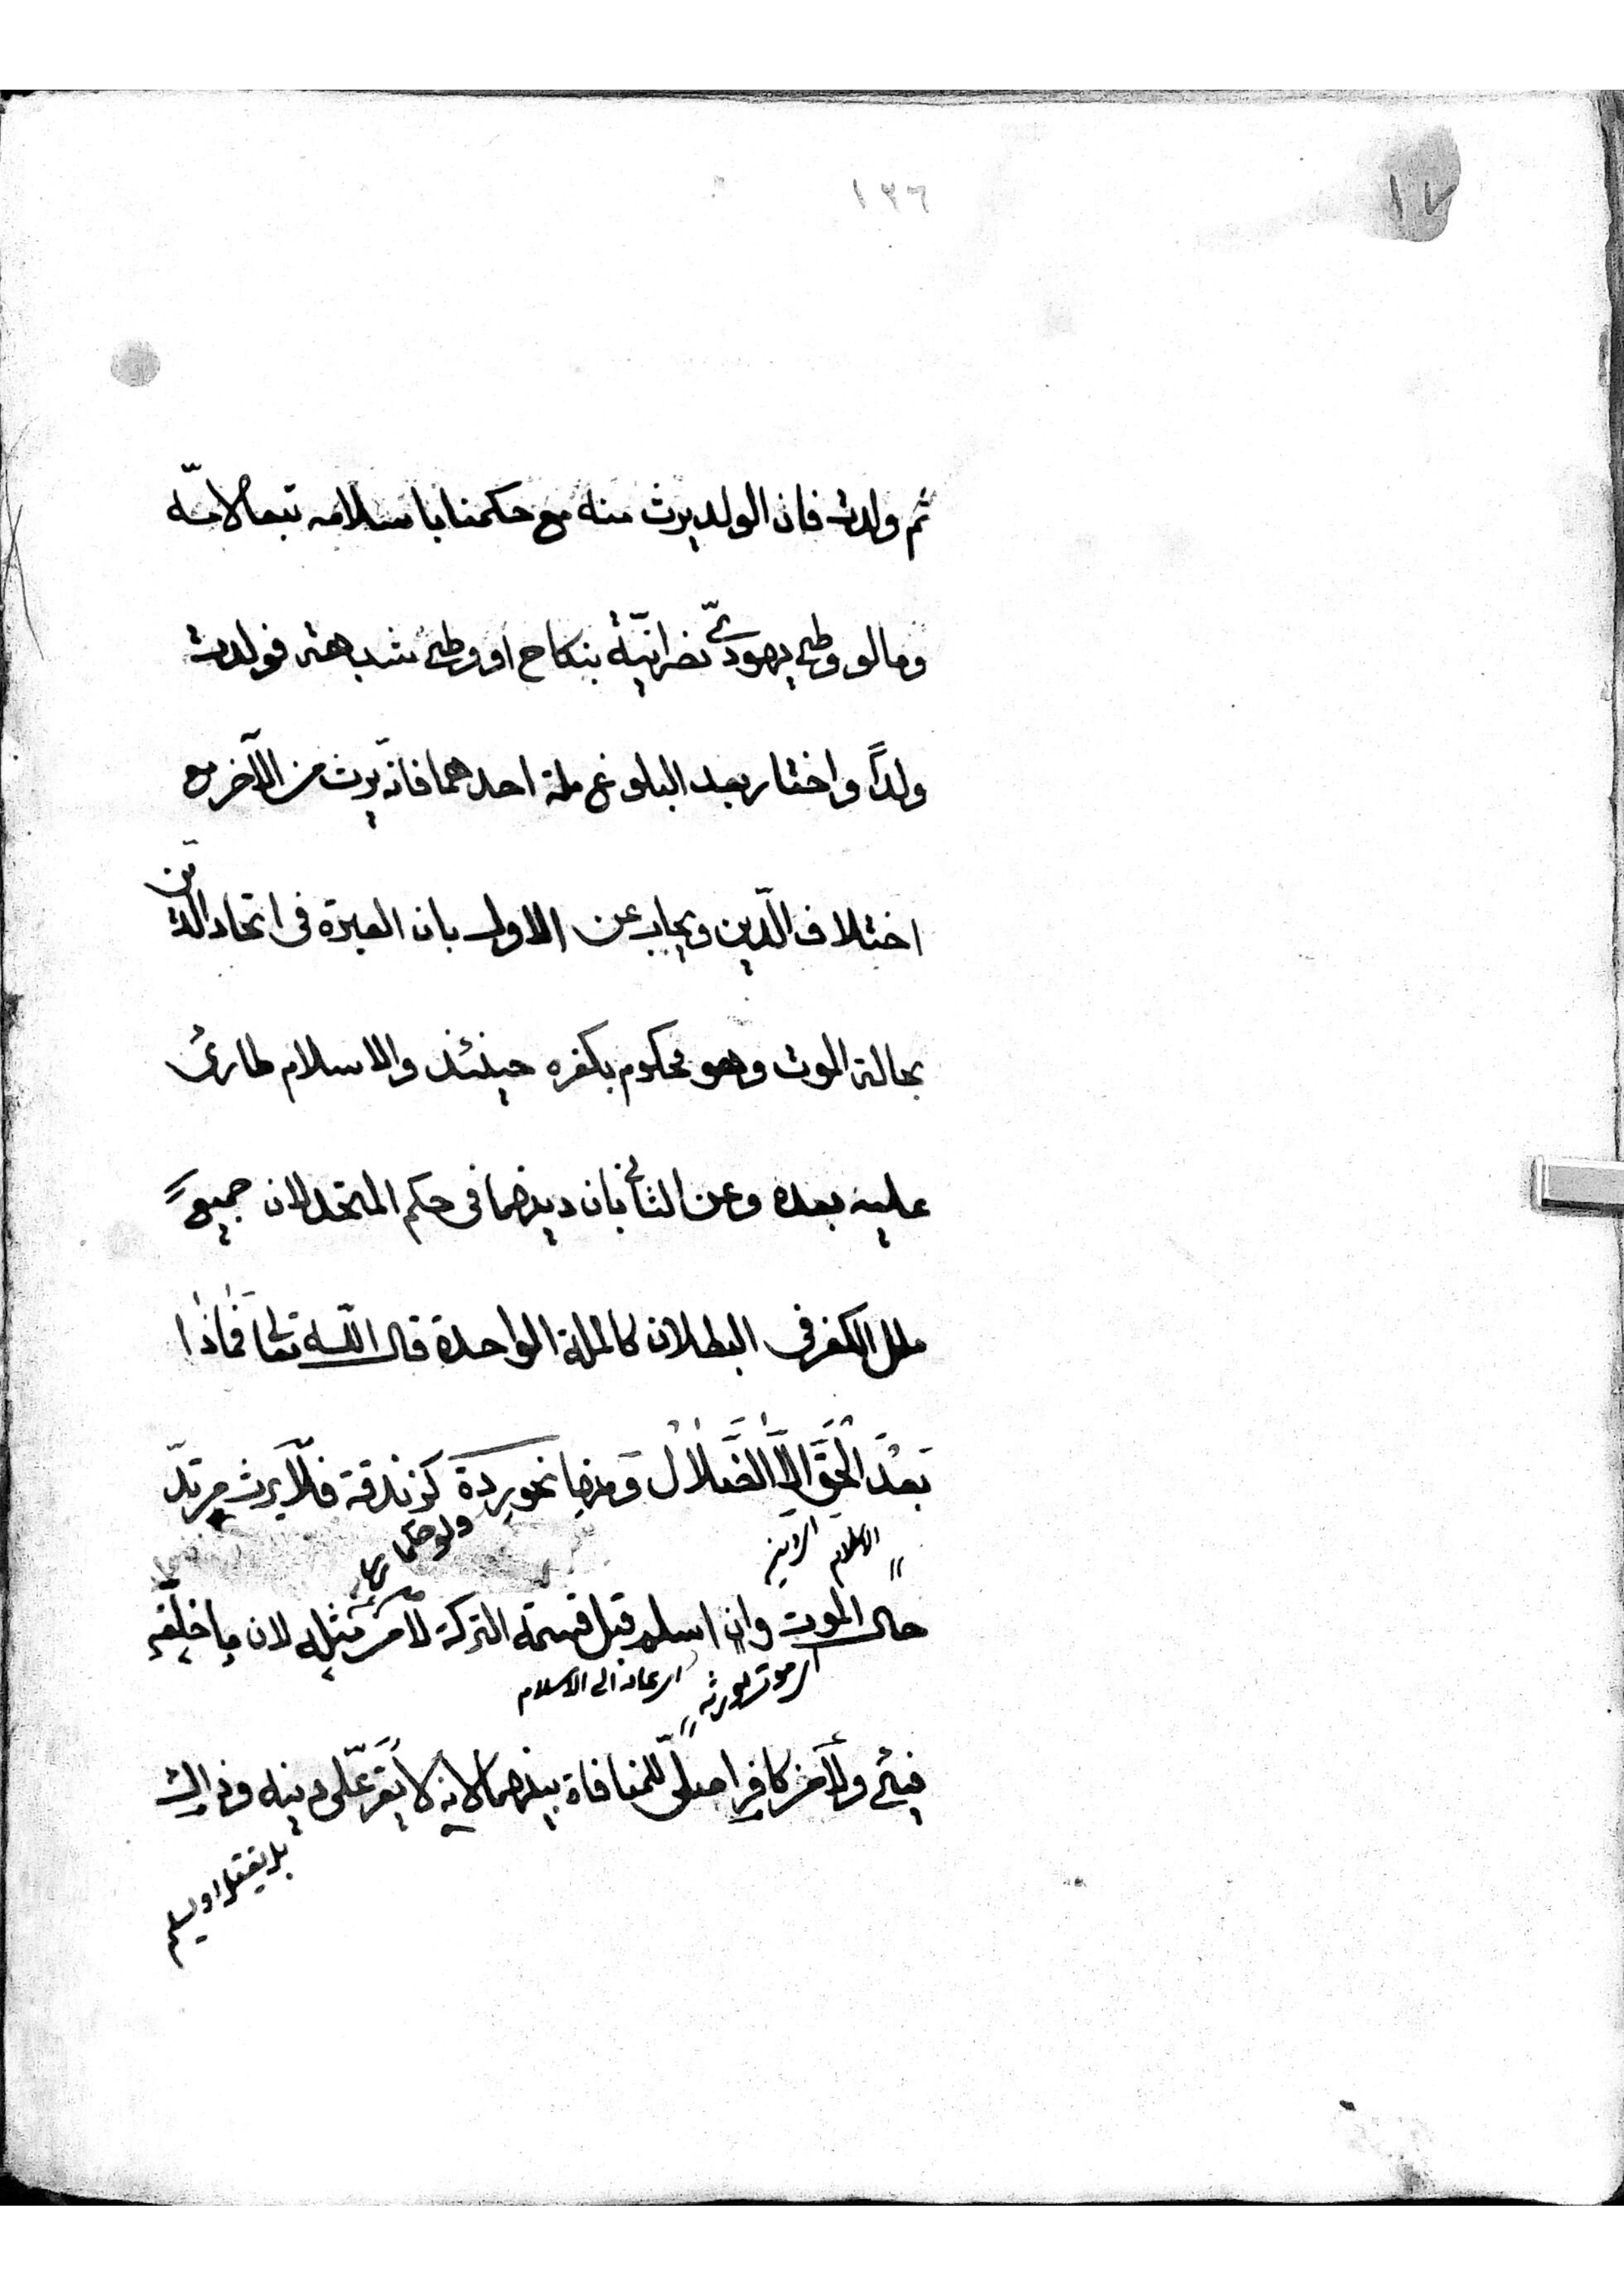 ١٧
١٣٦
ثم ولدت فان الولد يرث منه مع حكمنا باسلامه تبعا لامّه
وما لو وطئ يهوديّ نصرانيّة بنكاح او وطئ شبهة فولدت
ولداً واختار بعد البلوغ ملة احدهما فانّه يرث من الآخر مع
اختلاف الدّين ويجاب عن الاول بان العبرة فى اتحاد الدّين
بحالة الموت وهو محكوم بكفره حينئذ والاسلام طارئ
عليه بعده وعن الثانى بان دينهما فى حكم المتحد لان جميع
ملل الكفر فى البطلان كالملة الواحدة قال الله تعالى فماذا
بعْدَ الْحَقّ الاَّ الضَّلاَلُ ومنها نحو ردة كزندقة فلا يرث مرتدّ
الاسلام
حال الموت وان اسلم قبل قسمة التركة لا من مثله لان ما خلفه
اى عاد الى الاسلام
فيئ ولا من كافر اصلىّ للمنافاة بينهما لانه لا يقرّ على دينه وذاك
بل يقتل او يسلم